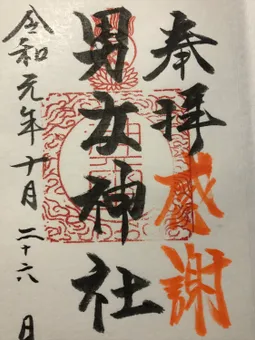 奉拝感謝
男女神社
令和元年十月二十六日